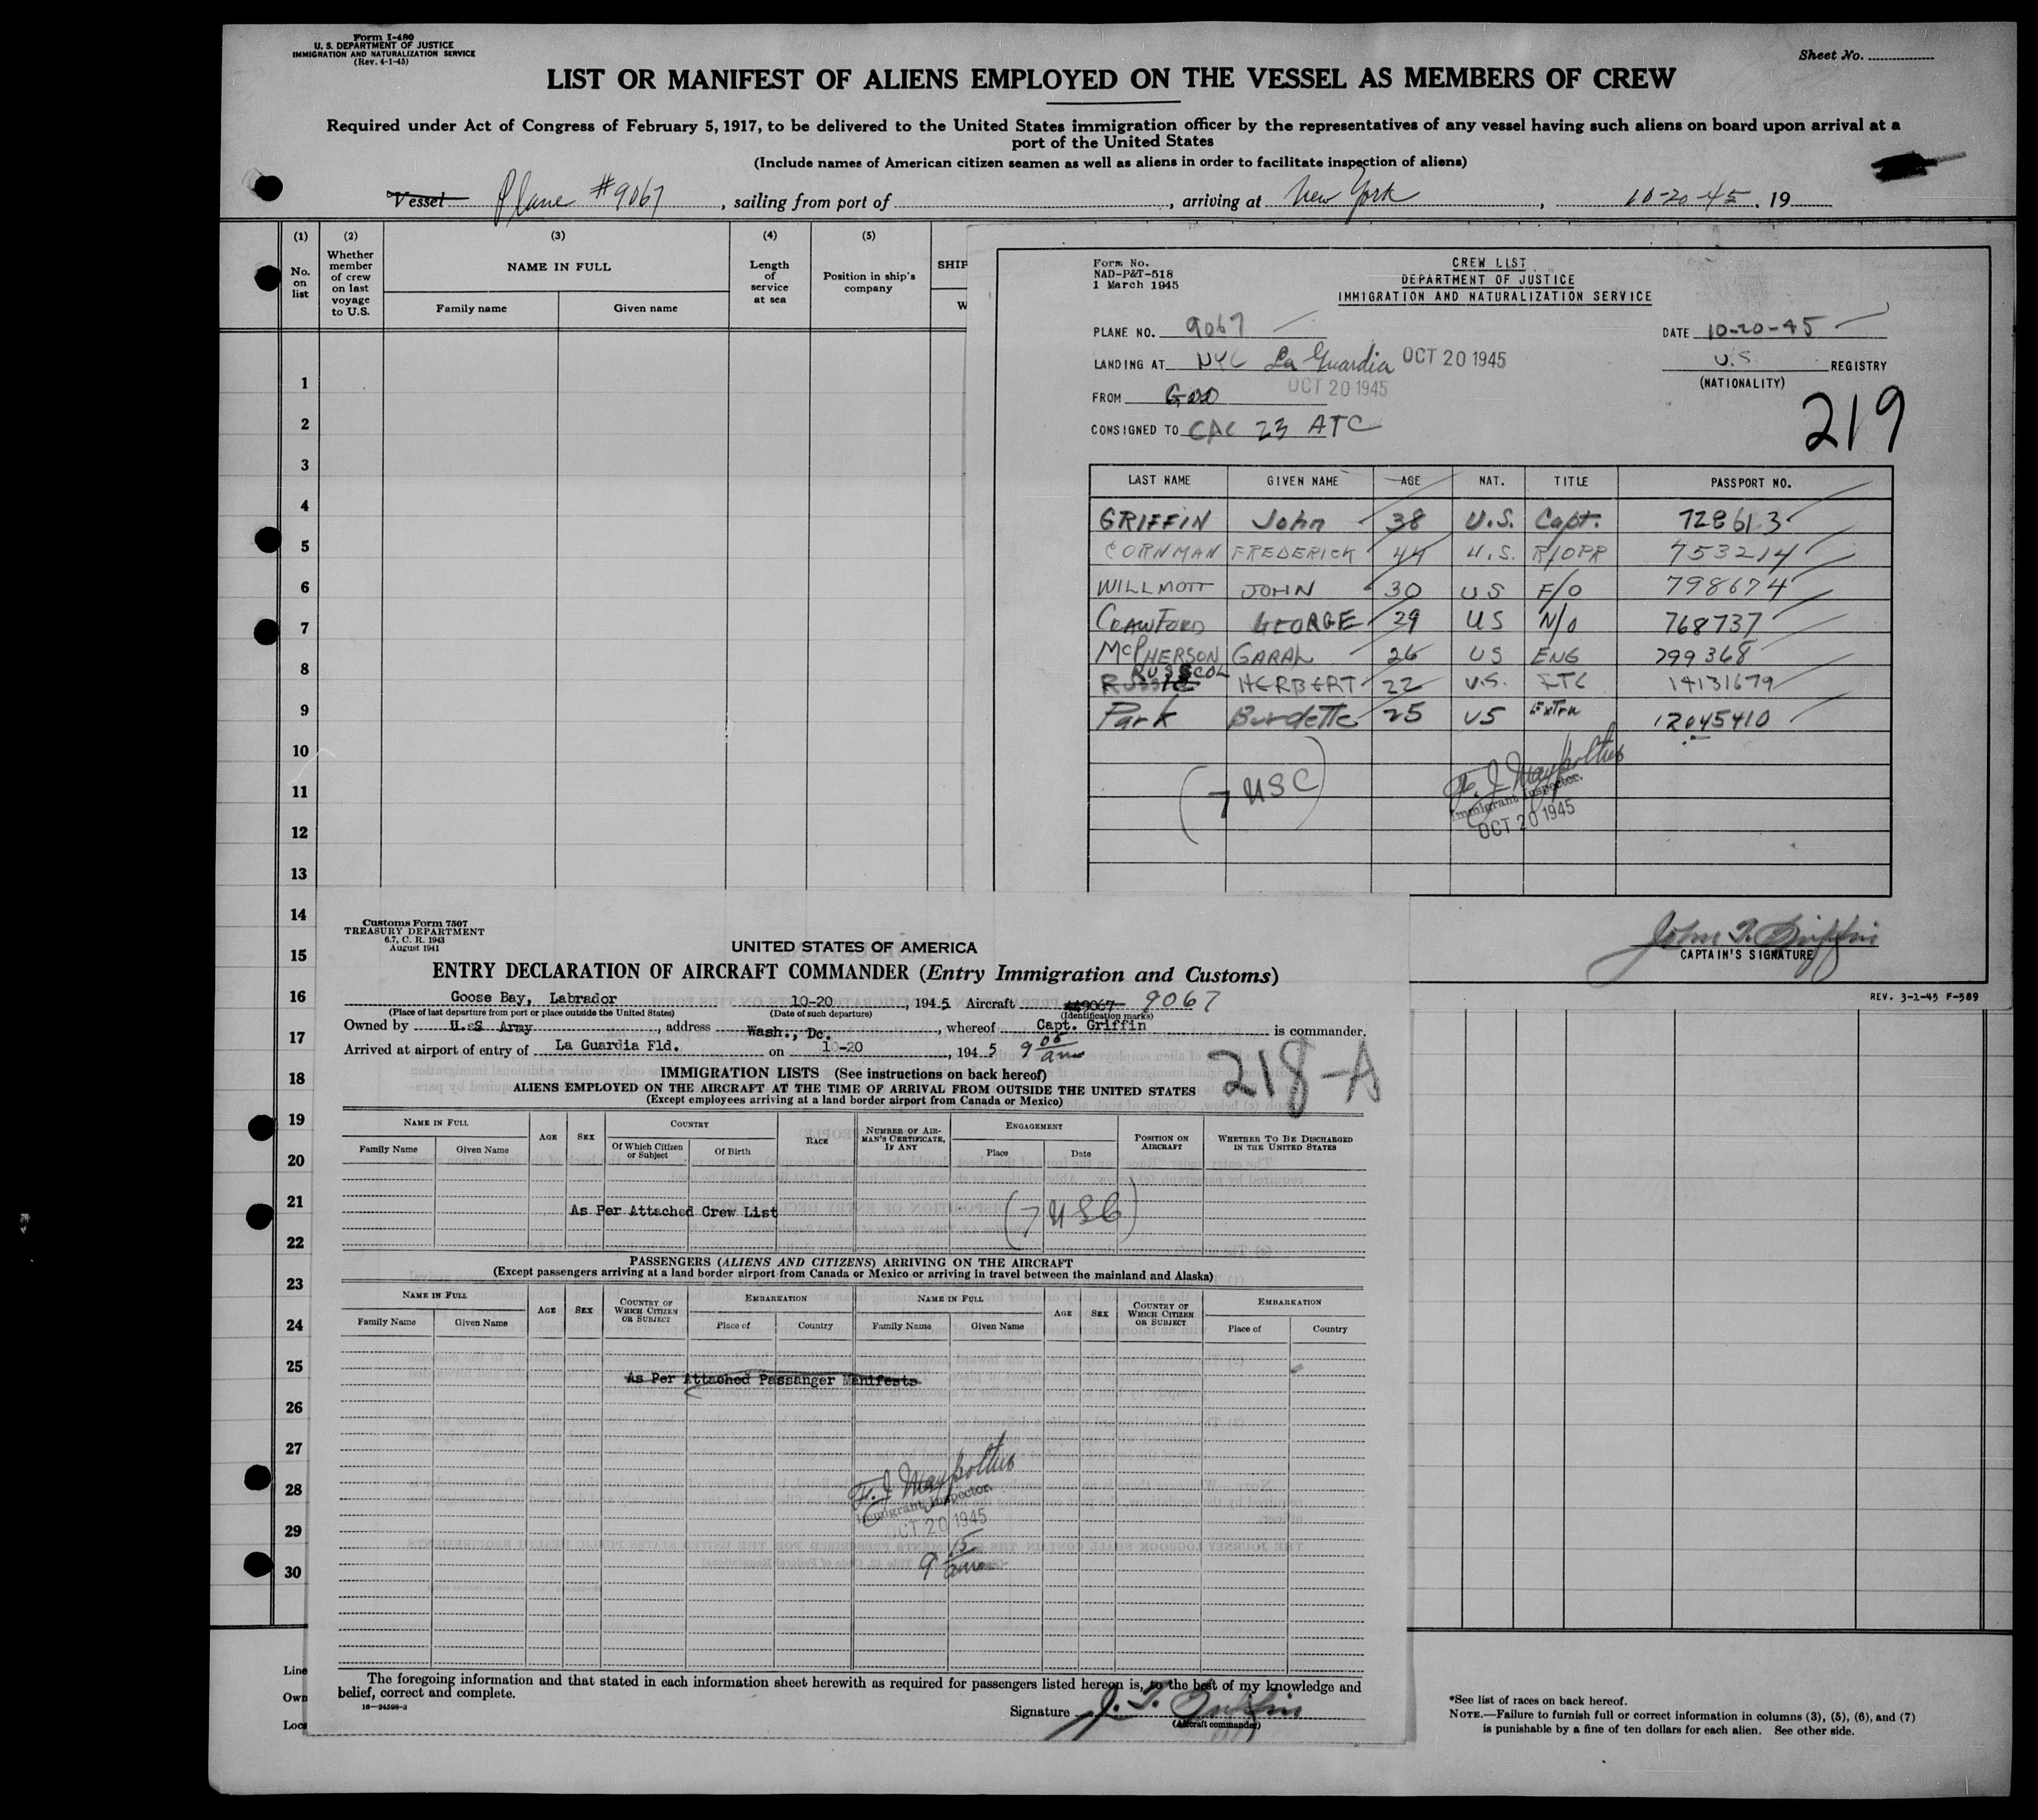 Form I-480
U. S. DEPARTMENT OF JUSTICE
IMMIGRATION AND NATURALIZATION SERVICE
(Rev. 4-1-45)
Sheet No.
LIST OR MANIFEST OF ALIENS EMPLOYED ON THE VESSEL AS MEMBERS OF CREW
Required under Act of Congress of February 5, 1917, to be delivered to the United States immigration officer by the representatives of any vessel having such aliens on board upon arrival at a
port of the United States
(Include names of American citizen seamen as well as aliens in order to facilitate inspection of aliens)
Vessel Plane #9067, sailing from port of , arriving at New York, 10-20-45, 19
(1) (2) (3) (4) (5)
No. on list
Whether member of crew on last voyage to U.S.
NAME IN FULL
Family name Given name
Length of service at sea
Position in ship's company
SHIP
W
1
2
3
4
5
6
7
8
9
10
11
12
13
14
15
16
17
18
19
20
21
22
23
24
25
26
27
28
29
30
Line
Own
Loca
Form No.
NAD-P&T-518
1 March 1945
CREW LIST
DEPARTMENT OF JUSTICE
IMMIGRATION AND NATURALIZATION SERVICE
PLANE NO. 9067 DATE 10-20-45
LANDING AT NYC La Guardia OCT 20 1945 U.S. REGISTRY
(NATIONALITY)
FROM Goo OCT 20 1945
219
CONSIGNED TO CAC 23 ATC
LAST NAME GIVEN NAME AGE NAT. TITLE PASSPORT NO.
GRIFFIN John 38 U.S. Capt. 728613
CORNMAN FREDERICK 44 U.S. R/OPR 753214
WILLMOTT JOHN 30 US F/O 798674
CRAWFORD GEORGE 29 US N/O 768737
McPHERSON GARAL 26 US ENG 799368
HERBERT 22 U.S. 14131679
Park Burdette 25 US Extra 12045410
(7 USC)
Immigrant Inspector.
OCT 20 1945
CAPTAIN'S SIGNATURE
REV. 3-1-45 F-589
Customs Form 7507
TREASURY DEPARTMENT
6.7, C. R. 1943
August 1941
UNITED STATES OF AMERICA
ENTRY DECLARATION OF AIRCRAFT COMMANDER (Entry Immigration and Customs)
Goose Bay, Labrador 10-20, 1945 Aircraft 9067
(Place of last departure from port or place outside the United States) (Date of such departure) (Identification marks)
Owned by U.S Army, address Wash., Dc., whereof Capt. Griffin is commander.
Arrived at airport of entry of La Guardia Fld. on 10-20, 1945 9 05 am
218-A
IMMIGRATION LISTS (See instructions on back hereof)
ALIENS EMPLOYED ON THE AIRCRAFT AT THE TIME OF ARRIVAL FROM OUTSIDE THE UNITED STATES
(Except employees arriving at a land border airport from Canada or Mexico)
NAME IN FULL
Family Name Given Name
AGE SEX
COUNTRY
Of Which Citizen or Subject Of Birth
RACE
NUMBER OF AIRMAN'S CERTIFICATE, IF ANY
ENGAGEMENT
Place Date
POSITION ON AIRCRAFT
WHETHER TO BE DISCHARGED IN THE UNITED STATES
As Per Attached Crew List
(7 USC)
PASSENGERS (ALIENS AND CITIZENS) ARRIVING ON THE AIRCRAFT
(Except passengers arriving at a land border airport from Canada or Mexico or arriving in travel between the mainland and Alaska)
NAME IN FULL AGE SEX COUNTRY OF WHICH CITIZEN OR SUBJECT EMBARKATION NAME IN FULL AGE SEX COUNTRY OF WHICH CITIZEN OR SUBJECT EMBARKATION
Family Name Given Name Place of Country Family Name Given Name Place of Country
As Per Attached Passanger Manifests
Immigrant Inspector.
OCT 20 1945
9 15 am
The foregoing information and that stated in each information sheet herewith as required for passengers listed hereon is, to the best of my knowledge and
belief, correct and complete.
16—24598-3
Signature J. T. Griffin
(Aircraft commander)
*See list of races on back hereof.
NOTE.—Failure to furnish full or correct information in columns (3), (5), (6), and (7)
is punishable by a fine of ten dollars for each alien. See other side.